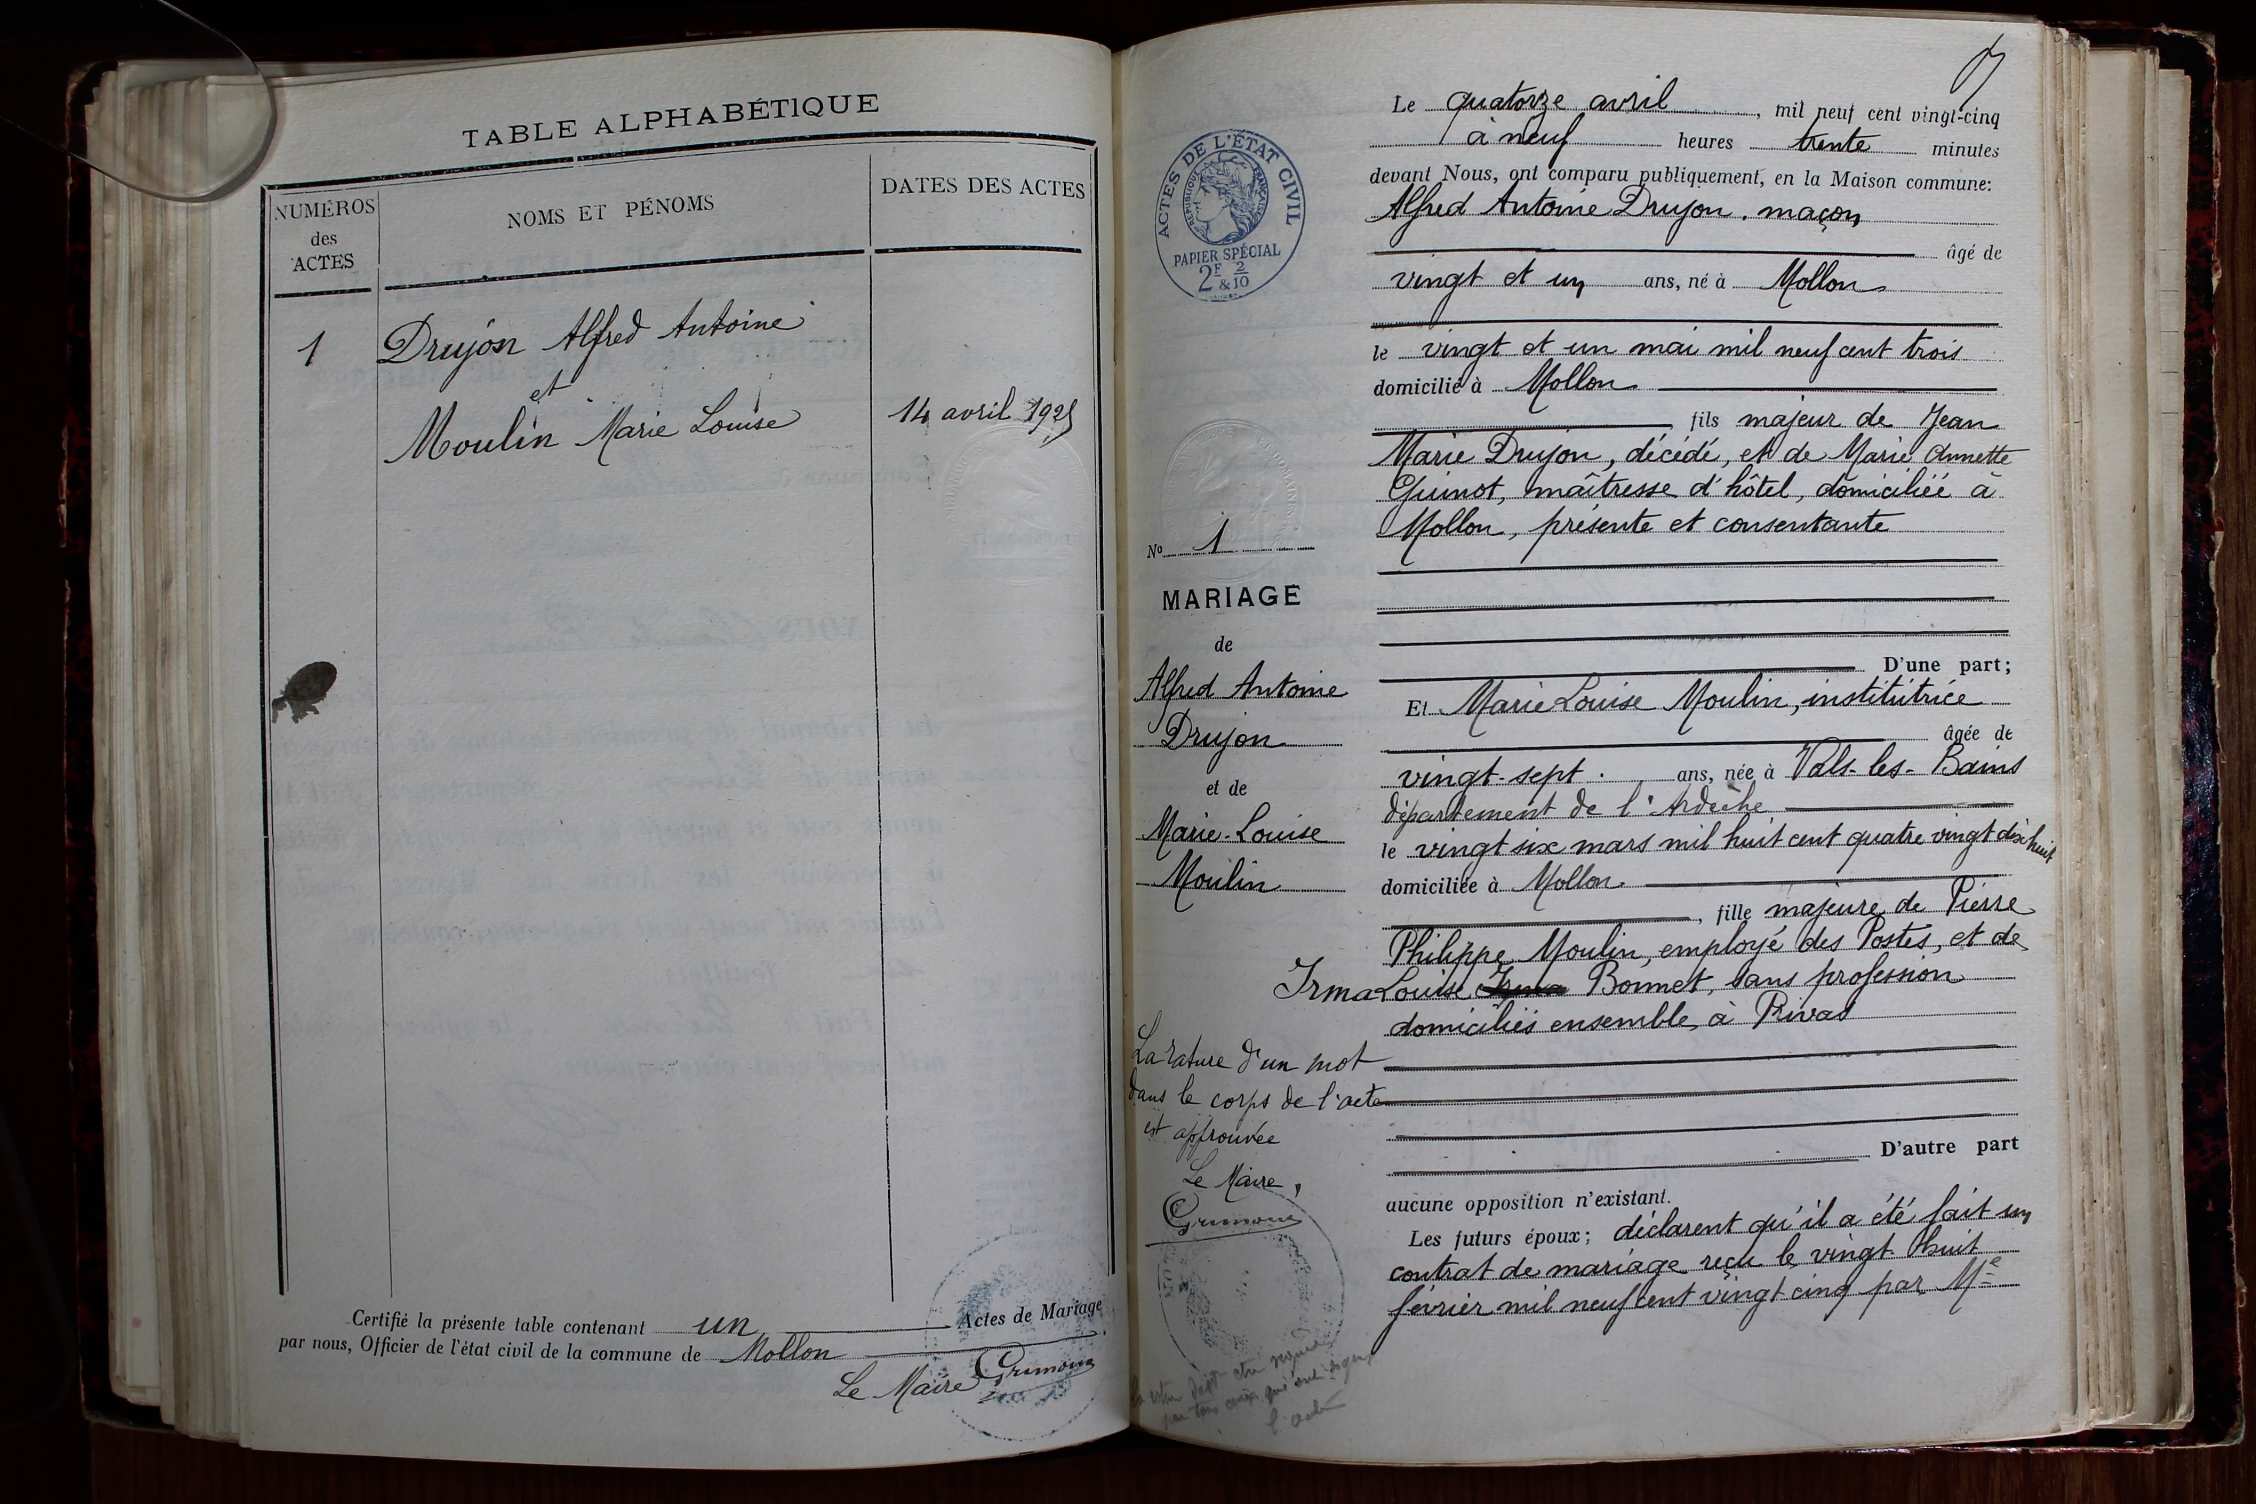 TABLE ALPHABÉTIQUE
NUMÉROS
des
ACTES
NOMS ET PÉNOMS
DATES DES ACTES
1
Drujon Alfred Antoine
et
Moulin Marie Louise
14 avril 1925
Certifié la présente table contenant un Actes de Mariage
par nous, Officier de l'état civil de la commune de Mollon
Le Maire
ACTES DE L'ÉTAT CIVIL
RÉPUBLIQUE FRANÇAISE
PAPIER SPÉCIAL
2F 2
& 10
No 1
MARIAGE
de
Alfred Antoine
Drujon
et de
Marie-Louise
Moulin
La rature d'un mot
dans le corps de l'acte
est approuvée
Le Maire,
Le quatorze avril, mil neuf cent vingt-cinq
à neuf heures trente minutes
devant Nous, ont comparu publiquement, en la Maison commune:
Alfred Antoine Drujon. maçon
âgé de
vingt et un ans, né à Mollon
le vingt et un mai mil neuf cent trois
domicilié à Mollon
, fils majeur de Jean
Marie Drujon, décédé, et de Marie Annette
Guinot, maîtresse d'hôtel, domiciliée à
Mollon, présente et consentante
D'une part;
Et Marie Louise Moulin, institutrice
âgée de
vingt-sept. ans, née à Vals-les-Bains
département de l'Ardèche
le vingt six mars mil huit cent quatre vingt dix huit
domiciliée à Mollon
, fille majeure de Pierre
Philippe Moulin, employé des Postes, et de
Irma Louise Irma Bonnet, sans profession
domiciliés ensemble à Privas
D'autre part
aucune opposition n'existant.
Les futurs époux; déclarent qu'il a été fait un
contrat de mariage reçu le vingt huit
février mil neuf cent vingt cinq par Me